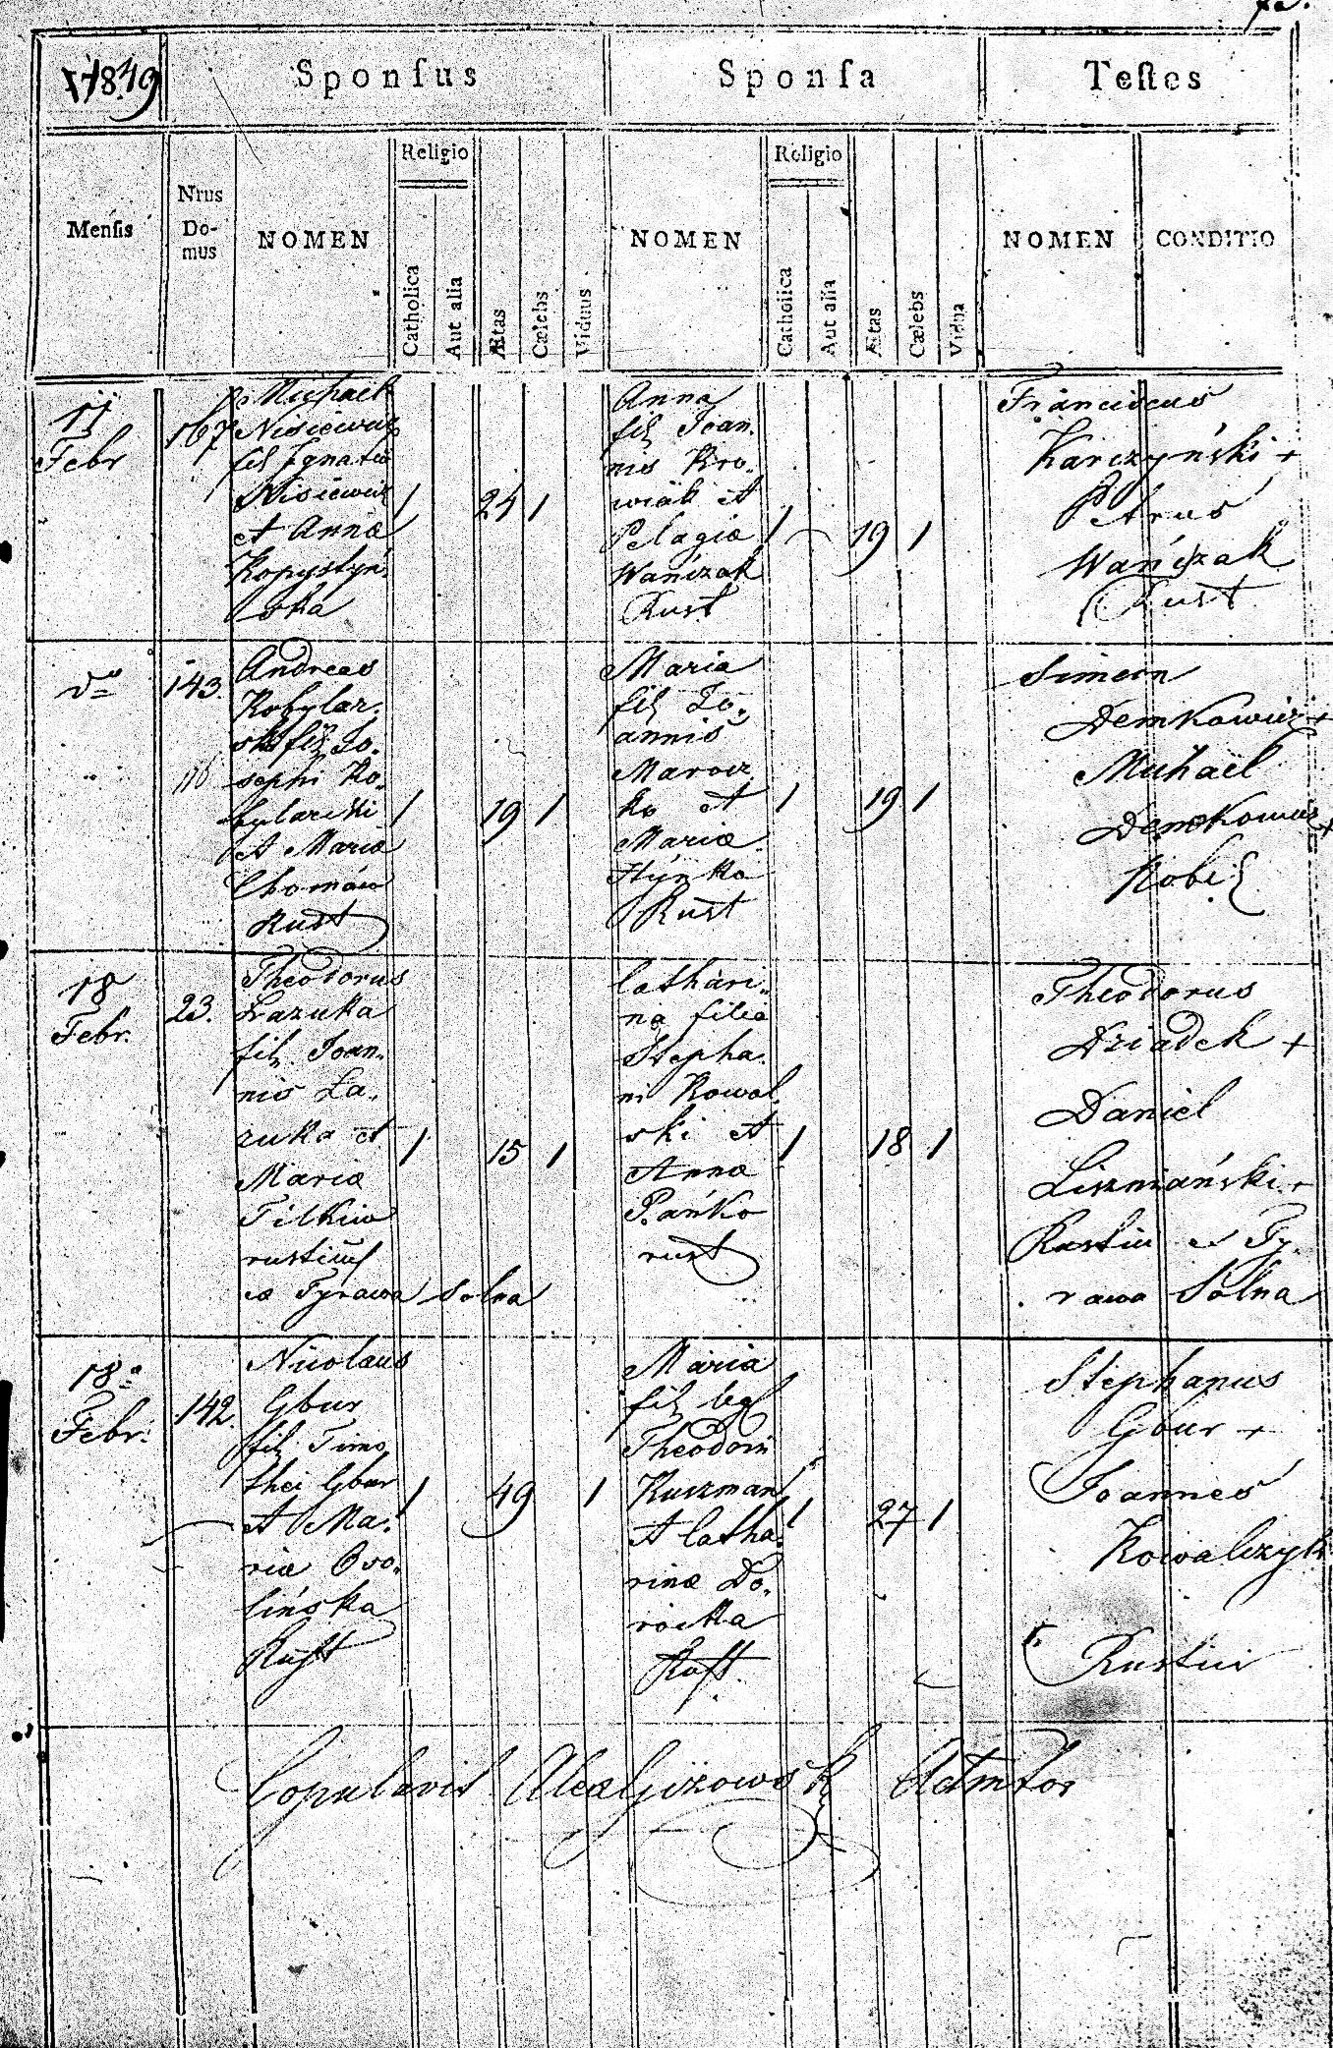 1849
Sponſus
Sponſa
Teſtes
Menſis
Nrus
Do-
mus
NOMEN
Religio
Catholica
Aut alia
Ætas
Cælebs
Viduus
NOMEN
Religio
Catholica
Aut alia
Ætas
Cælebs
Vidua
NOMEN
CONDITIO
11
Febr
167
Michael
Nisiewicz
fil Ignatii
Nisiewicz
et Anna
Kopystyń-
ska
1
24
1
Anna
fil Joan-
nis Kro-
wiak et
Pelagiæ
Wańczak
Rust
1
19
1
Franciscus
Karczyński +
Petrus
Wańczak
Rust
143.
116
Andreas
Kobylar-
ski fil Jo-
sephi Ko-
bylarski
et Mariæ
Chomów
Rust
1
19
1
Maria
fil Jo-
annis
Marocz
ko et
Mariæ
Hynko
Rust
1
19
1
Simeon
Demkowicz +
Michael
Demkowicz +
18
Febr.
23.
Theodorus
Łazuka
fil. Joan-
nis Ła-
zuka et
Mariæ
Filkiw
rusticus
ex Tyrawa Solna
1
15
1
Cathari-
na filia
Stepha-
ni Kowal-
ski et
Annæ
Pańko
rust
1
18
1
Theodorus
Dziadek +
Daniel
Liszniański +
Rustici ex Ty-
rawa Solna
18
Febr.
142.
Nicolaus
Gbur
fil Timo
thei Gbur
et Ma-
riæ Oso-
lińska
Rust
1
49
1
Maria
fil
Theodori
Kuszman
et Catha-
rinæ Do-
rocka
Rust.
1
27
1
Stephanus
Gbur +
Joannes
Kowalczyk
Rustici
Copulavit